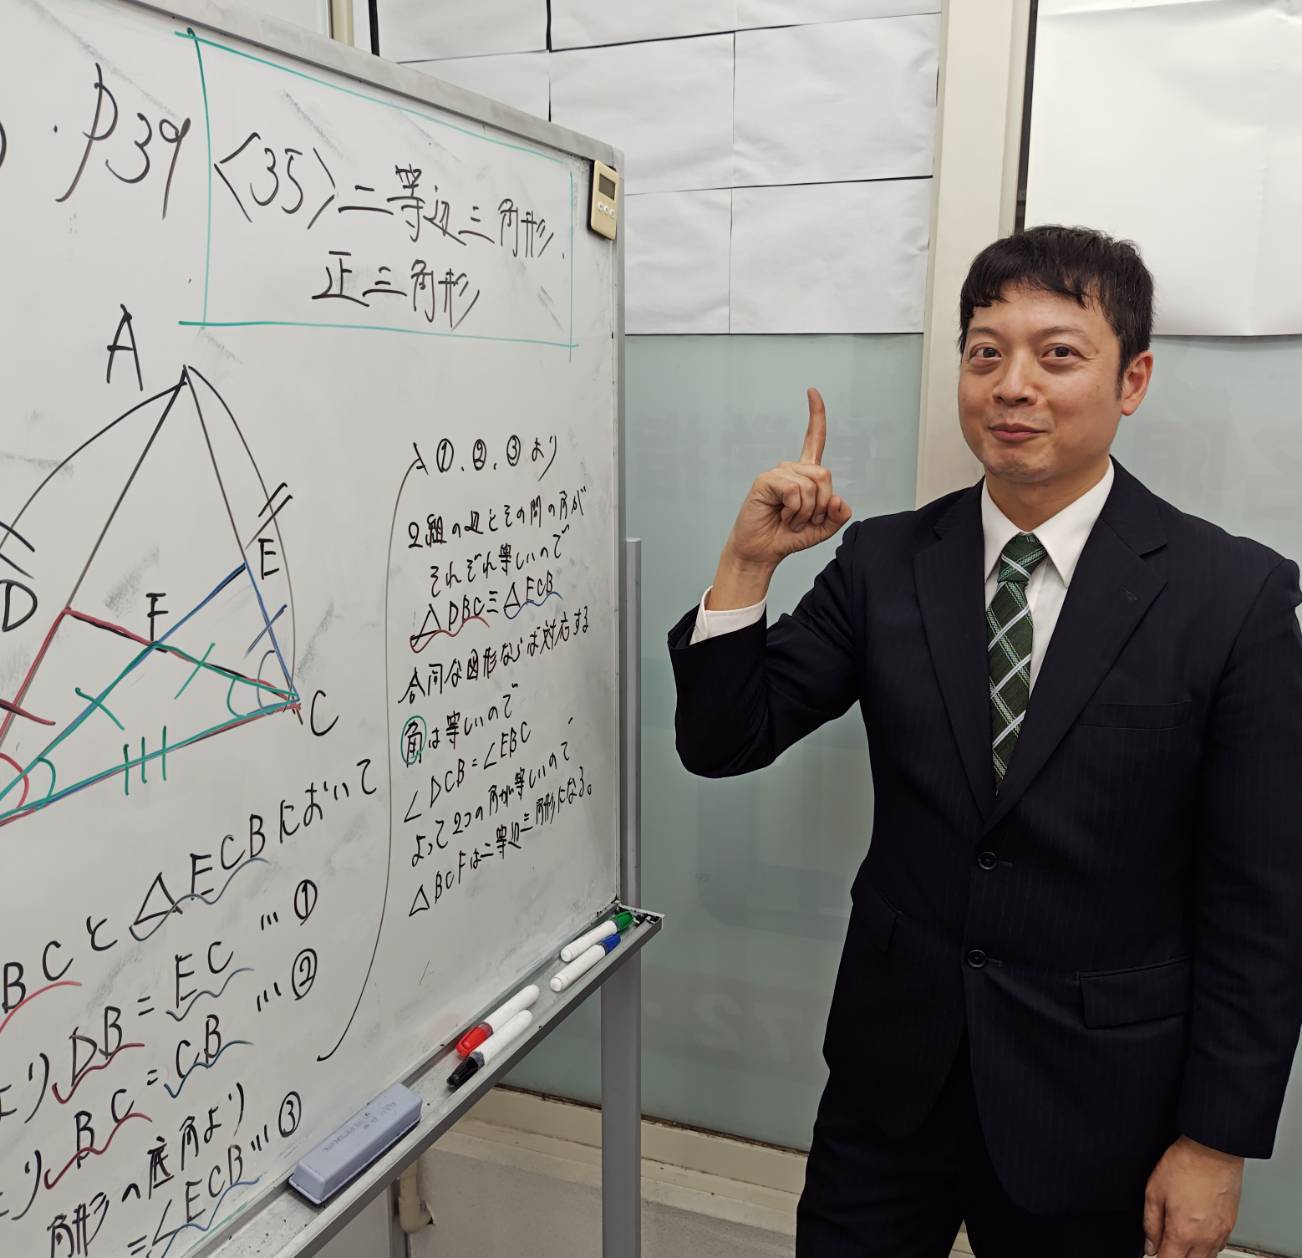 . P39
〈35〉二等辺三角形、
正三角形
A
D
F
E
C
BCと△ECBにおいて
よりDB=EC …①
よりBC=CB …②
角形の底角より
=∠ECB…③
①、②、③より
2組の辺とその間の角が
それぞれ等しいので
△DBC≡△ECB
合同な図形ならば対応する
角は等しいので
∠DCB=∠EBC
よって2つの角が等しいので
△BCFは二等辺三角形になる。